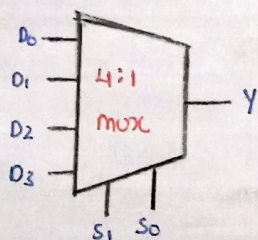 D0
D1
D2
D3
4:1
mux
Y
S1 S0